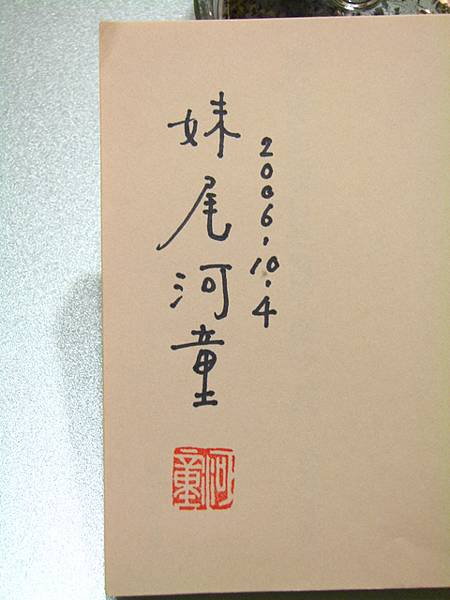 妹尾河童
2006.10.4
河童